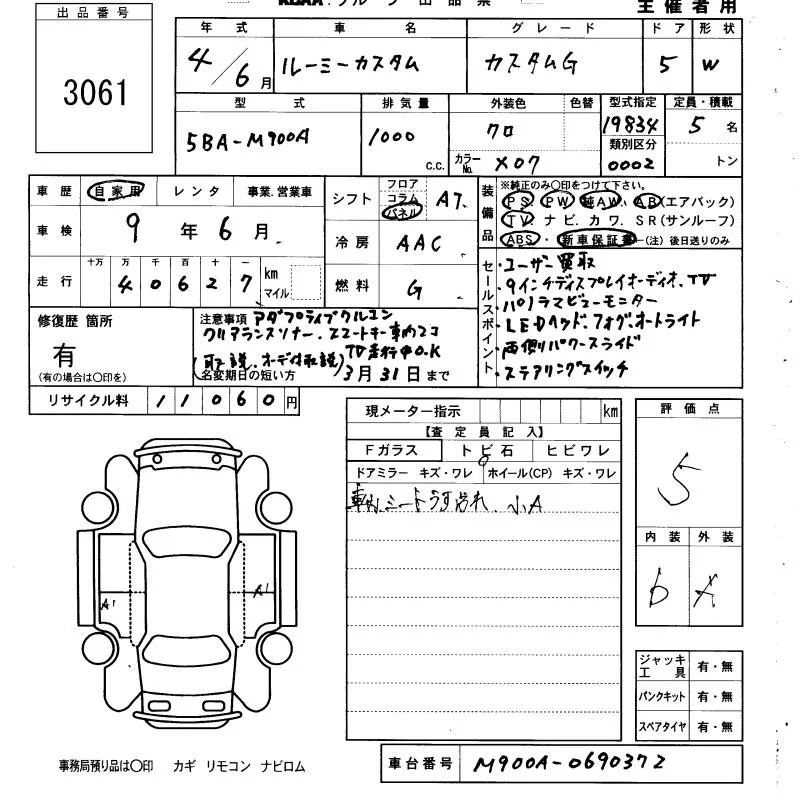 出品番号
3061
主催者用
年式 車名 グレード ドア 形状
4/6月 ルーミーカスタム カスタムG 5 W
型式 排気量 外装色 色替 型式指定 定員・積載
5BA-M900A 1000 c.c. クロ 19834 5名
類別区分
カラーNo. X07 0002 トン
車歴 自家用 レンタ 事業.営業車
シフト フロア コラム パネル AT
装備品 ※純正のみ○印をつけて下さい。
PS PW 純AW. AB(エアバック)
TV ナビ. カワ. SR(サンルーフ)
ABS・新車保証書─(注)後日送りのみ
車検 9年6月
冷房 AAC
走行 十万 万 千 百 十 一
40627 km マイル
燃料 G
セールスポイント
・ユーザー買取
・9インチディスプレイオーディオ、TV
・パノラマビューモニター
・LEDヘッド、フォグ、オートライト
・両側パワースライド
・ステアリングスイッチ
修復歴 箇所
有
(有の場合は○印を)
注意事項 アダプティブクルコン
クリアランスソナー、スマートキー車内2コ
TV走行中O.K
(取説、オーデオ取説)
(名変期日の短い方) 3月31日まで
リサイクル料 11060円
現メーター指示 km
【査定員記入】
Fガラス トビ石 ヒビワレ
ドアミラー キズ・ワレ ホイール(CP) キズ・ワレ
小A
評価点
5
内装 外装
b A
A1 A1
ジャッキ工具 有・無
パンクキット 有・無
スペアタイヤ 有・無
事務局預り品は○印 カギ リモコン ナビロム
車台番号 M900A-0690372